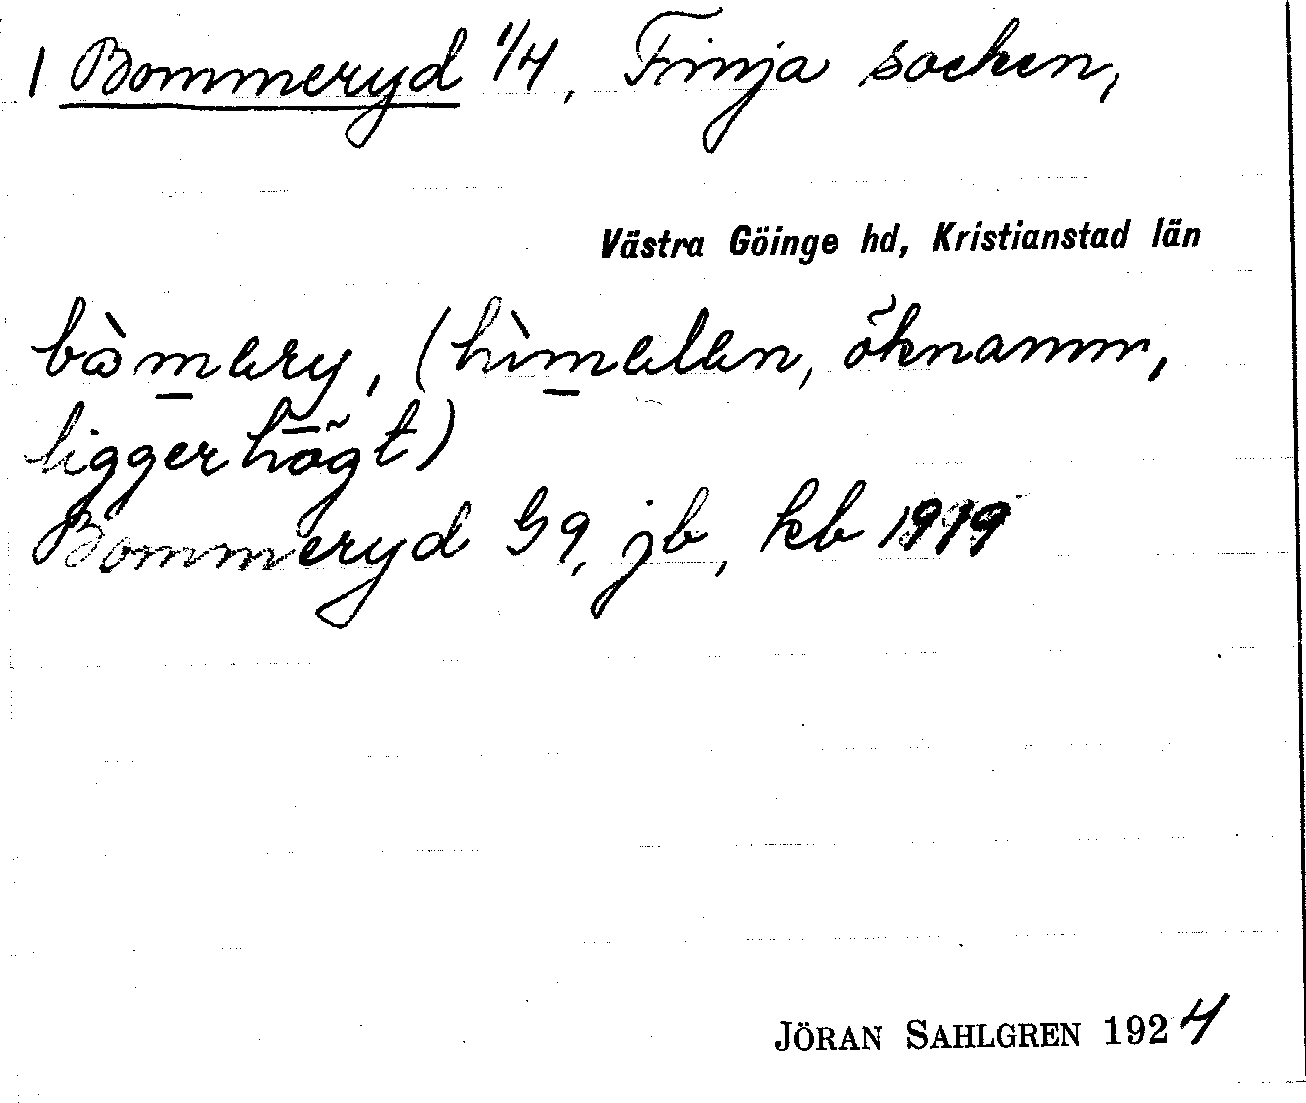 1 Bommeryd 1/4, Finja socken,
Västra Göinge hd, Kristianstad län
bòmery, (hìmelen, öknamn,
ligger högt)
Bommeryd G9, jb, kb 1919
JÖRAN SAHLGREN 1924